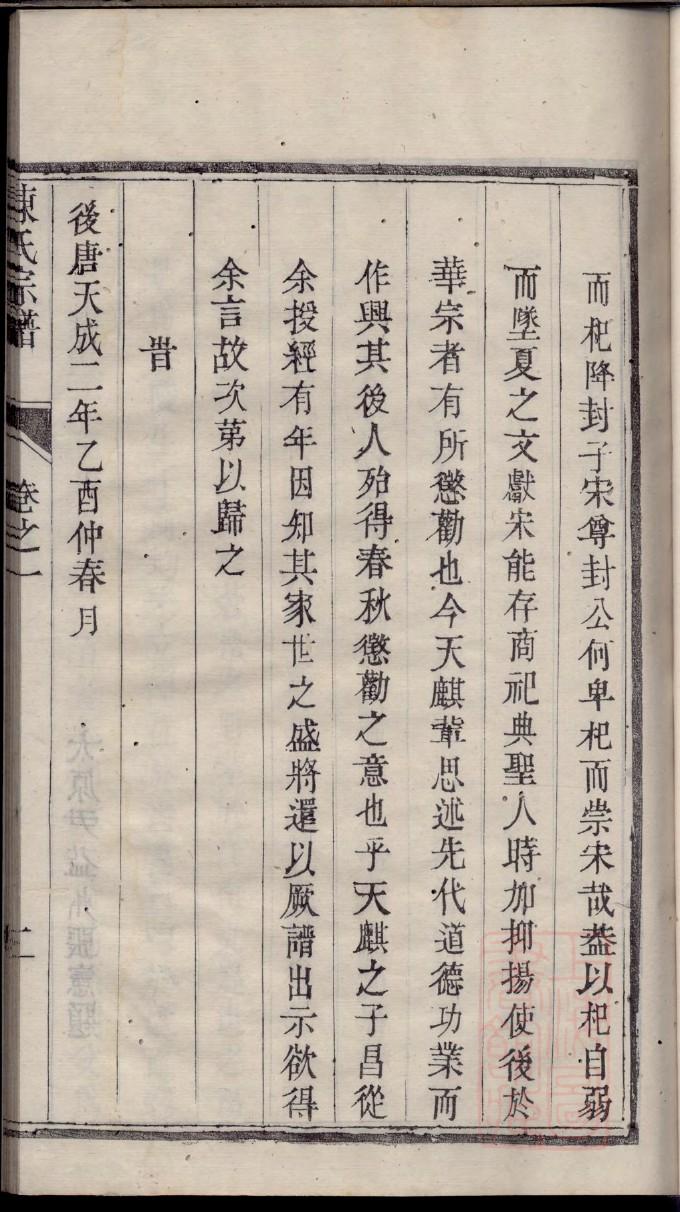 而杞降封子宋尊封公何卑杞而崇宋哉葢以杞自弱
而墜夏之文獻宋能存商祀典聖人時加抑揚使後於
華宗者有所懲勸也今天麒輩思述先代道德功業而
作興其後人殆得春秋懲勸之意也乎天麒之子昌從
余授經有年因知其家世之盛將還以厥譜出示欲得
余言故次第以歸之
旹
後唐天成二年乙酉仲春月
陳氏宗譜 卷之一 二